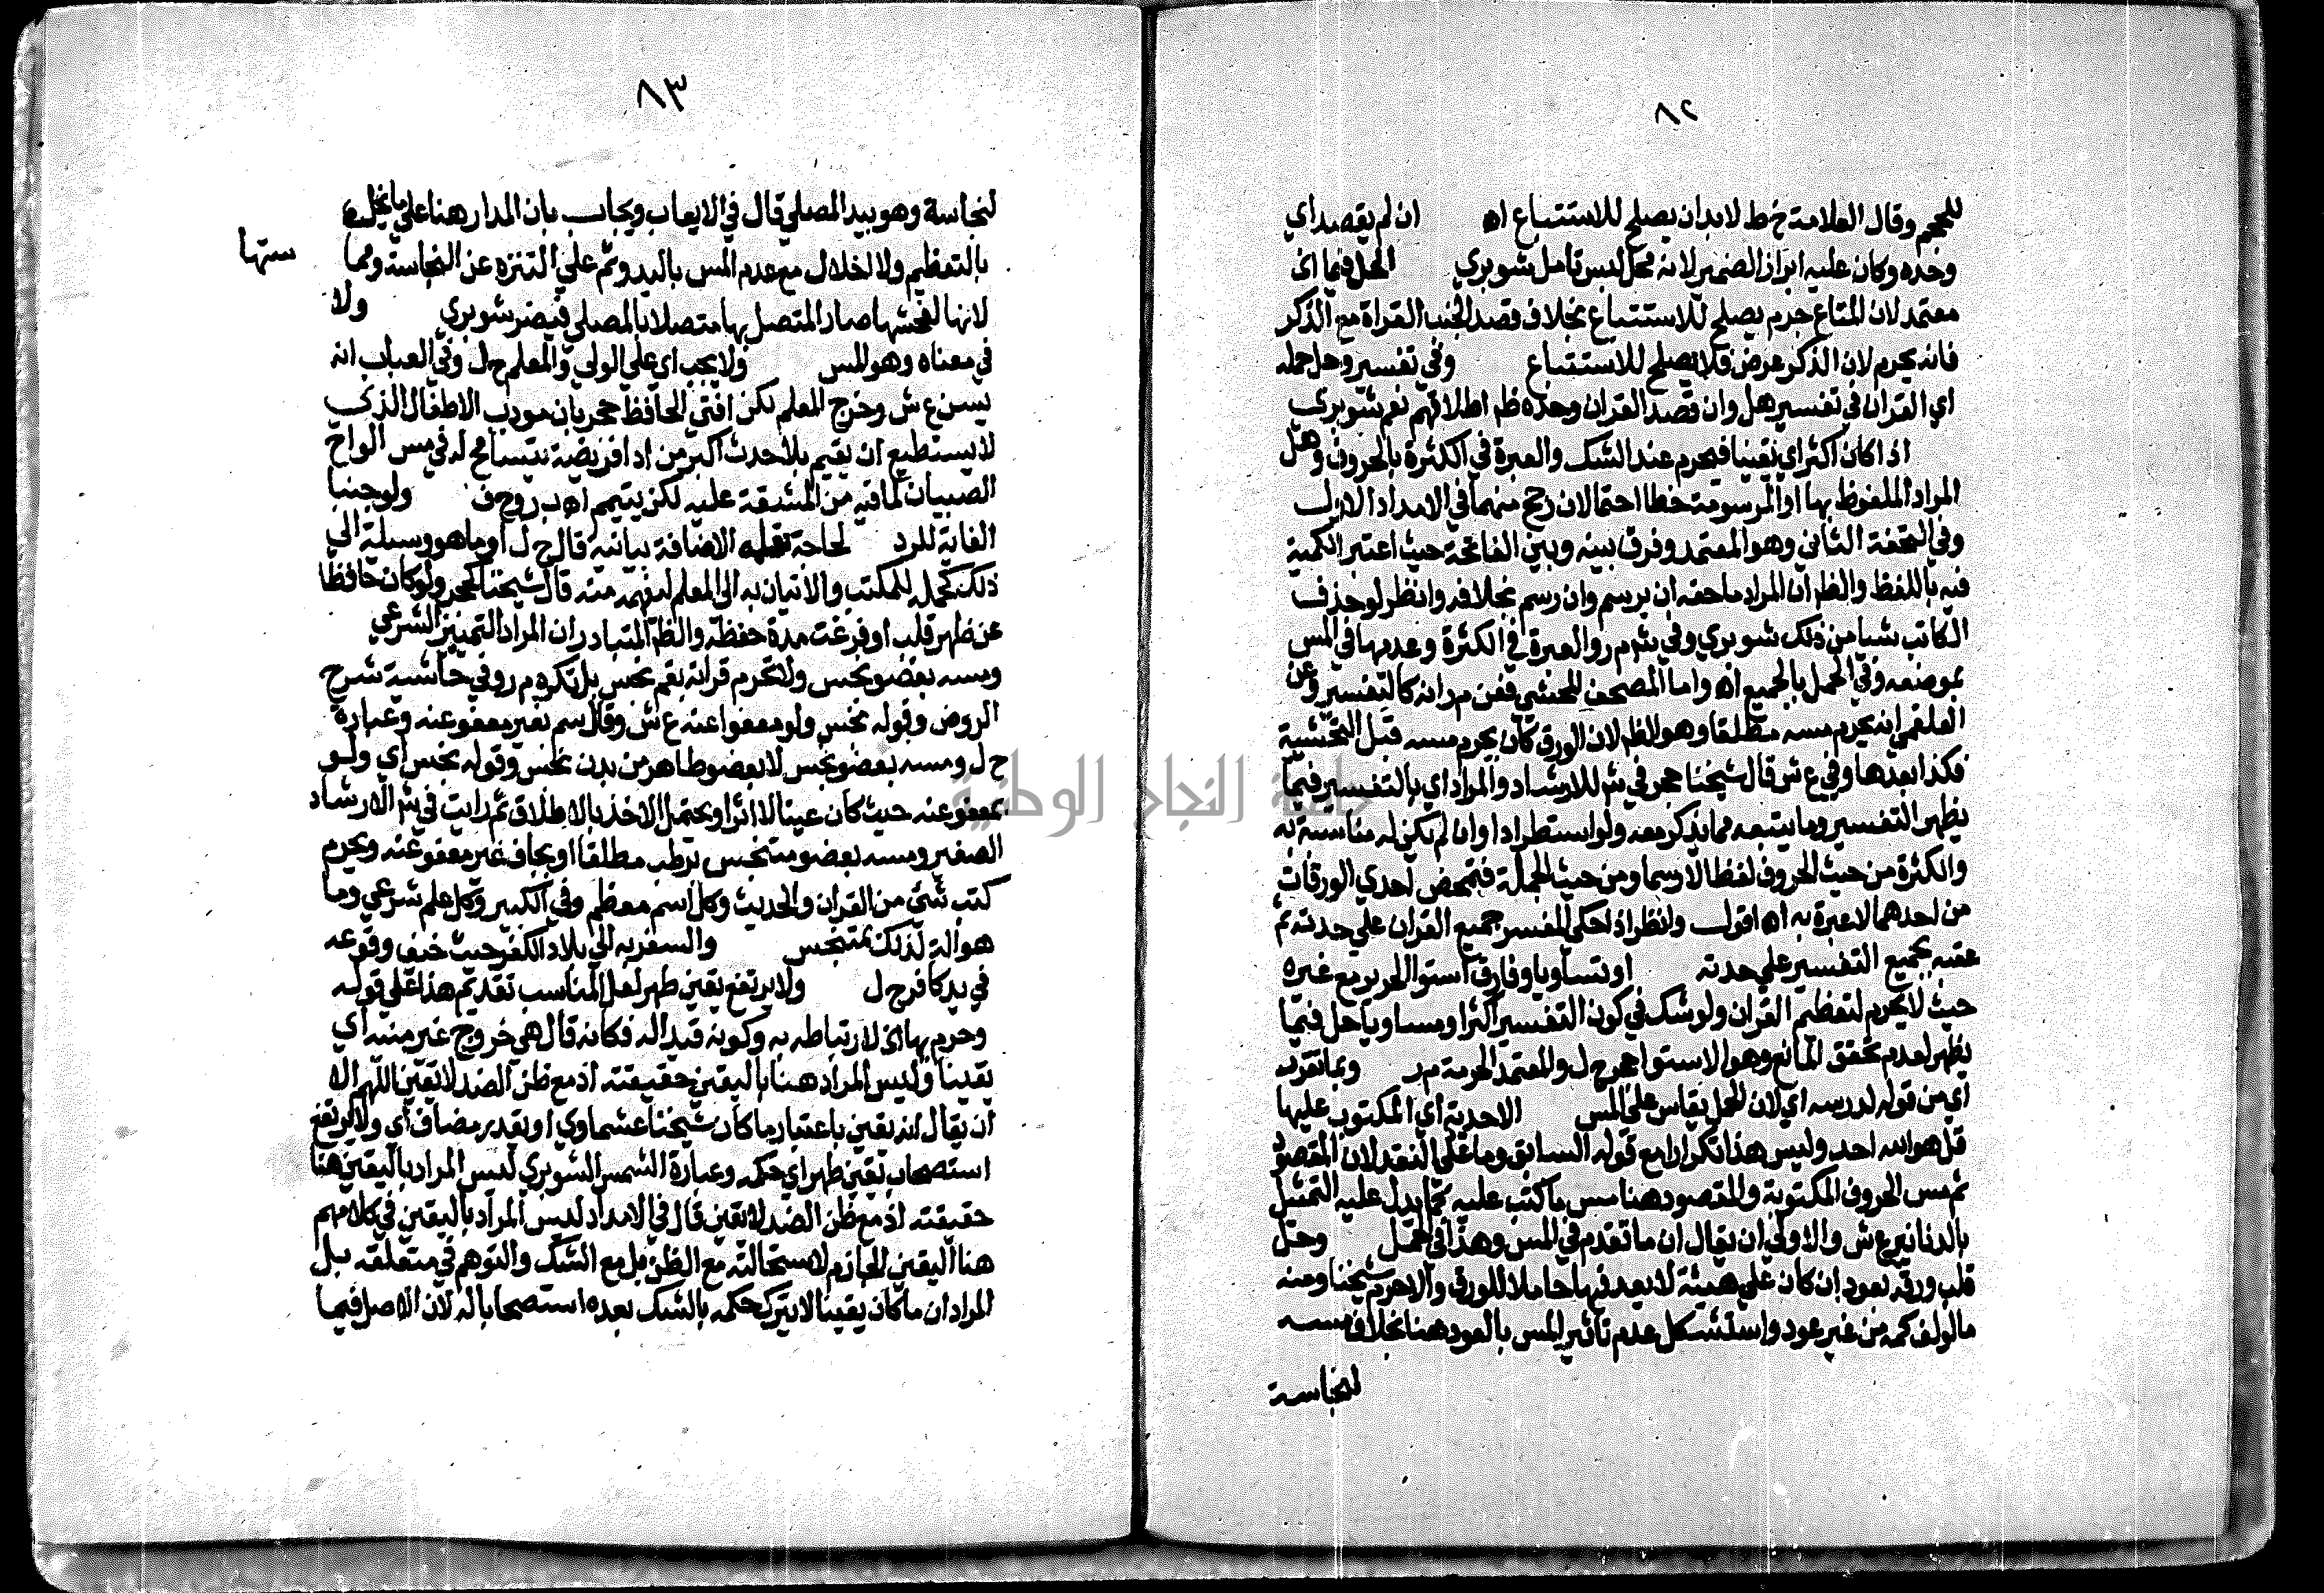 ٨٢
للحجم وقال العلامة خ ط لا بد ان يصلح للاستتباع اه ان لم يقصد اي
وحده وكان عليه ابراز الضمير لانه محل لبس تأمل شوبري الحل فيما اذ
معتمد لان المتاع جرم يصلح للاستتباع بخلاف قصد الجنب القراة مع الذكر
فانه يحرم لان الذكر عرض فلا يصلح للاستتباع وفي تفسير وحل حمله
اي القران في تفسير هل وان قصد القران وحده ظم اطلاقهم نعم شوبري
اذا كان اكثر اي يقينا فيحرم عند الشك والعبرة في الكثرة بالحروف وهل
المراد الملفوظ بها او المرسومة خطا احتمالان رجح منهما في الامداد الاول
وفي التحفة الثاني وهو المعتمد وفرق بينه وبين الفاتحة حيث اعتبر الكمية
فيه باللفظ والظم ان المراد ما حقه ان يرسم وان رسم بخلافه وانظر لو حذف
الكاتب شيا من ذلك شوبري وفي شم م ر والعبرة في الكثرة وعدمها في المس
بموضعه وفي الحمل بالجميع اه واما المصحف المحشي فعن م ر انه كالتفسير وعن
العلقمي انه يحرم مسه مطلقا وهو الظم لان الورق كان يحرم مسه قبل التحشية
فكذا بعدها وفي ع ش قال شيخنا حجر في شم الارشاد والمراد اي بالتفسير فيما
يظهر التفسير وما يتبعه مما يذكر معه ولو استطرادا وان لم يكن له مناسبة به
والكثرة من حيث الحروف لفظا لا رسما ومن حيث الجملة فتمحض احدي الورقات
من احدهما لا عبرة به اه اقول وانظر اذا حكى المفسر جميع القران علي حدته ثم
عقبه بجميع التفسير علي حدته او تساويا وفارق استوا الحرير مع غيره
حيث لا يحرم لتعظيم القران ولو شك في كون التفسير اكثر او مساويا حل فيما
يظهر لعدم تحقق المانع وهو الاستوا حجر ح ل والمعتمد الحرمة م ر وبما تقرر
اي من قوله لدرسه اي لان الحمل يقاس على المس الاحدية اي المكتوب عليها
قل هو الله احد وليس هذا تكرارا مع قوله السابق وما علي النقد لان المقصود
ثم مس الحروف المكتوبة والمقصود هنا مس ما كتب عليه كما يدل عليه التمثيل
بالدنانير ع ش والاولي ان يقال ان ما تقدم في المس وهذا في الحمل وحل
قلب ورقه بعود ان كان علي هيئة لا يعد فيها حاملا للورق والا حرم شيخنا ومنه
ما لو لف كمه من غير عود واستشكل عدم تاثير المس بالعود هنا بخلاف مسه
لنجاسة
٨٣
لنجاسة وهو بيد المصلي قال في الايعاب ويجاب بان المدار هنا علي ما يخل
بالتعظيم ولا اخلال مع عدم المس باليد وثم علي التنزه عن النجاسة ومما
ستها
لانها لفحشها صار المتصل بها متصلا بالمصلي فيضر شوبري ولا
في معناه وهو المس ولا يجب اي على الولي والمعلم ح ل وفي العباب انه
يسن ع ش وخرج المعلم لكن افتى الحافظ حجر بان مودب الاطفال الذي
لا يستطيع ان يقيم بلا حدث اكبر من ادا فريضة يتسامح له في مس الواح
الصبيان لما فيه من المشقة عليه لكن يتيمم اه ب ر وح ف ولو جنبا
الغاية للرد لحاجة تعلمه الاضافة بيانية قال ح ل او ما هو وسيلة الى
ذلك كحمله للمكتب والاتيان به الى المعلم ليفهمه منه قال شيخنا كحجر ولو كان حافظا
عن ظهر قلب او فرغت مدة حفظه والظم المتبادر ان المراد التمييز الشرعي
ومسه بعضو نجس ولا تحرم قراته بفم نجس بل تكره م ر وفي حاشية شرح
الروض وقوله نجس ولو معفوا عنه ع ش وقال سم بغير معفو عنه وعبارة
ح ل ومسه بعضو نجس لا بعضو طاهر من بدن نجس وقوله نجس اي ولو
بمعفو عنه حيث كان عينا لا اثرا ويحتمل الاخذ بالاطلاق ثم رايت في شم الارشاد
الصغير ومسه بعضو متنجس برطب مطلقا او بجاف غير معفو عنه ويحرم
كتب شئ من القران والحديث وكل اسم معظم وفي الكبير وكل علم شرعي وما
هو الة لذلك بمتنجس والسفر به الي بلاد الكفر حيث خيف وقوعه
في يد كافر ح ل ولا يرتفع يقين طهر لعل المناسب تقديم هذا علي قوله
وحرم بها اي لارتباطه به وكونه قيدا له فكانه قال هي خروج غير منيه اي
يقينا وليس المراد هنا باليقين حقيقته اذ مع ظن الضد لا يقين اللهم الا
ان يقال انه يقين باعتبار ما كان شيخنا عشماوي او يقدر مضاف اي ولا يرتفع
استصحاب يقين طهر اي حكمه وعبارة الشمس الشوبري ليس المراد باليقين هنا
حقيقته اذ مع ظن الضد لا يقين قال في الامداد ليس المراد باليقين في كلامهم
هنا اليقين الجازم لاستحالته مع الظن بل مع الشك والتوهم في متعلقه بل
المراد ان ما كان يقينا لا يترك حكمه بالشك بعده استصحابا له لان الاصل فيما